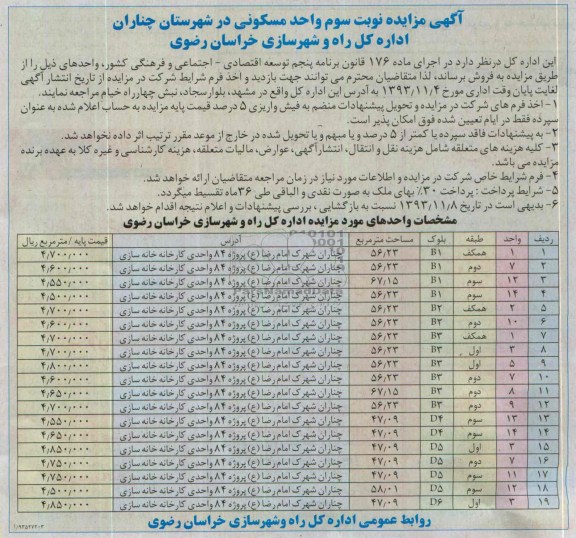 آگهی مزایده نوبت سوم واحد مسکونی در شهرستان چناران
اداره کل راه و شهرسازی خراسان رضوی
این اداره کل درنظر دارد در اجرای ماده ۱۷۶ قانون برنامه پنجم توسعه اقتصادی - اجتماعی و فرهنگی کشور، واحدهای ذیل را از
طریق مزایده به فروش برساند، لذا متقاضیان محترم می توانند جهت بازدید و اخذ فرم شرایط شرکت در مزایده از تاریخ انتشار آگهی
لغایت پایان وقت اداری مورخ ۱۳۹۳/۱۱/۴ به آدرس این اداره کل واقع در مشهد، بلوارسجاد، نبش چهارراه خیام مراجعه نمایند.
۱- اخذ فرم های شرکت در مزایده و تحویل پیشنهادات منضم به فیش واریزی ۵ درصد قیمت پایه مزایده به حساب اعلام شده به عنوان
سپرده فقط در ایام تعیین شده فوق امکان پذیر است.
۲- به پیشنهادات فاقد سپرده یا کمتر از ۵ درصد و یا مبهم و یا تحویل شده در خارج از موعد مقرر ترتیب اثر داده نخواهد شد.
۳- کلیه هزینه های متعلقه شامل هزینه نقل و انتقال، انتشارآگهی، عوارض، مالیات متعلقه، هزینه کارشناسی و غیره کلا به عهده برنده
مزایده می باشد.
۴- فرم شرایط خاص شرکت در مزایده و اطلاعات مورد نیاز در زمان مراجعه متقاضیان ارائه خواهد شد.
۵- شرایط پرداخت : پرداخت ۳۰٪ بهای ملک به صورت نقدی و الباقی طی ۳۶ماه تقسیط میگردد.
۶- بدیهی است در تاریخ ۱۳۹۳/۱۱/۸ نسبت به بازگشایی ، بررسی پیشنهادات و اعلام نتیجه اقدام خواهد شد.
مشخصات واحدهای مورد مزایده اداره کل راه و شهرسازی خراسان رضوی
ردیف واحد طبقه بلوک مساحت مترمربع آدرس قیمت پایه / مترمربع ریال
۱ ۱ همکف B۱ ۵۶٫۲۳ چناران شهرک امام رضا (ع) پروژه ۸۴ واحدی کارخانه خانه سازی ۴٫۷۰۰٫۰۰۰
۲ ۷ دوم B۱ ۵۶٫۲۳ چناران شهرک امام رضا (ع) پروژه ۸۴ واحدی کارخانه خانه سازی ۴٫۶۰۰٫۰۰۰
۳ ۱۲ سوم B۱ ۶۷٫۱۵ چناران شهرک امام رضا (ع) پروژه ۸۴ واحدی کارخانه خانه سازی ۴٫۵۵۰٫۰۰۰
۴ ۱۴ سوم B۱ ۵۶٫۲۳ چناران شهرک امام رضا (ع) پروژه ۸۴ واحدی کارخانه خانه سازی ۴٫۵۰۰٫۰۰۰
۵ ۲ همکف B۲ ۵۶٫۲۳ چناران شهرک امام رضا (ع) پروژه ۸۴ واحدی کارخانه خانه سازی ۴٫۷۰۰٫۰۰۰
۶ ۱۰ دوم B۲ ۵۶٫۲۳ چناران شهرک امام رضا (ع) پروژه ۸۴ واحدی کارخانه خانه سازی ۴٫۶۰۰٫۰۰۰
۷ ۱ همکف B۳ ۵۶٫۲۳ چناران شهرک امام رضا (ع) پروژه ۸۴ واحدی کارخانه خانه سازی ۴٫۷۰۰٫۰۰۰
۸ ۳ اول B۳ ۵۶٫۲۳ چناران شهرک امام رضا (ع) پروژه ۸۴ واحدی کارخانه خانه سازی ۴٫۷۰۰٫۰۰۰
۹ ۵ اول B۳ ۵۶٫۲۳ چناران شهرک امام رضا (ع) پروژه ۸۴ واحدی کارخانه خانه سازی ۴٫۸۰۰٫۰۰۰
۱۰ ۷ دوم B۳ ۵۶٫۲۳ چناران شهرک امام رضا (ع) پروژه ۸۴ واحدی کارخانه خانه سازی ۴٫۶۰۰٫۰۰۰
۱۱ ۸ دوم B۳ ۶۷٫۱۵ چناران شهرک امام رضا (ع) پروژه ۸۴ واحدی کارخانه خانه سازی ۴٫۶۵۰٫۰۰۰
۱۲ ۹ دوم B۳ ۵۶٫۲۳ چناران شهرک امام رضا (ع) پروژه ۸۴ واحدی کارخانه خانه سازی ۴٫۷۰۰٫۰۰۰
۱۳ ۱۳ سوم D۴ ۴۷٫۰۹ چناران شهرک امام رضا (ع) پروژه ۸۴ واحدی کارخانه خانه سازی ۴٫۵۵۰٫۰۰۰
۱۴ ۱۴ سوم D۴ ۴۷٫۰۹ چناران شهرک امام رضا (ع) پروژه ۸۴ واحدی کارخانه خانه سازی ۴٫۶۵۰٫۰۰۰
۱۵ ۳ اول D۵ ۴۷٫۰۹ چناران شهرک امام رضا (ع) پروژه ۸۴ واحدی کارخانه خانه سازی ۴٫۸۵۰٫۰۰۰
۱۶ ۷ دوم D۵ ۴۷٫۰۹ چناران شهرک امام رضا (ع) پروژه ۸۴ واحدی کارخانه خانه سازی ۴٫۷۵۰٫۰۰۰
۱۷ ۱۱ سوم D۵ ۴۷٫۰۹ چناران شهرک امام رضا (ع) پروژه ۸۴ واحدی کارخانه خانه سازی ۴٫۷۵۰٫۰۰۰
۱۸ ۱۲ سوم D۵ ۵۸٫۰۱ چناران شهرک امام رضا (ع) پروژه ۸۴ واحدی کارخانه خانه سازی ۴٫۵۰۰٫۰۰۰
۱۹ ۳ اول D۶ ۴۷٫۰۹ چناران شهرک امام رضا (ع) پروژه ۸۴ واحدی کارخانه خانه سازی ۴٫۸۵۰٫۰۰۰
روابط عمومی اداره کل راه وشهرسازی خراسان رضوی